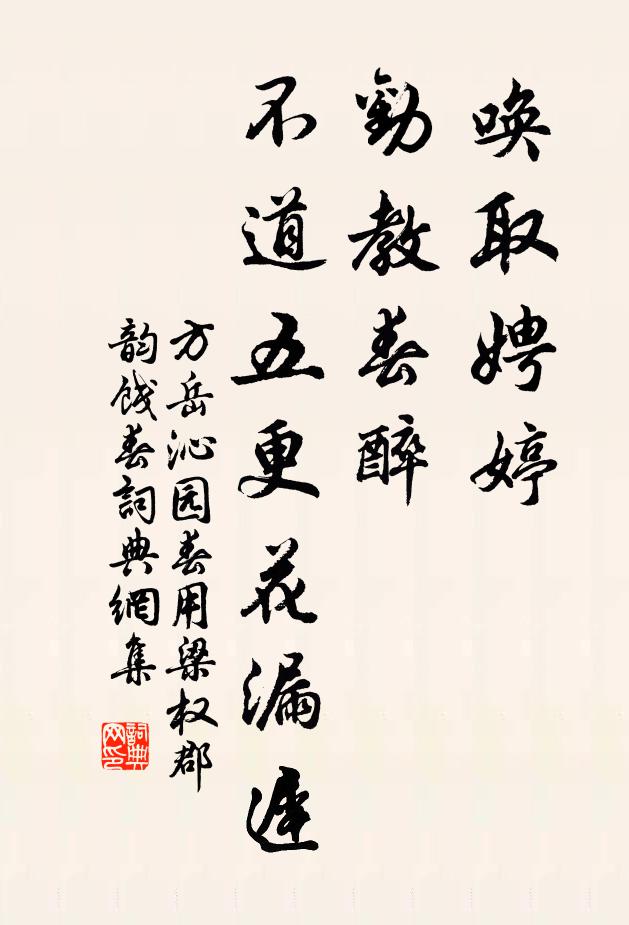 唤取娉婷
勸教春醉
不道五更花漏遲
方岳沁园春用梁权郡
韵饯春詞典網集
詞典
网印